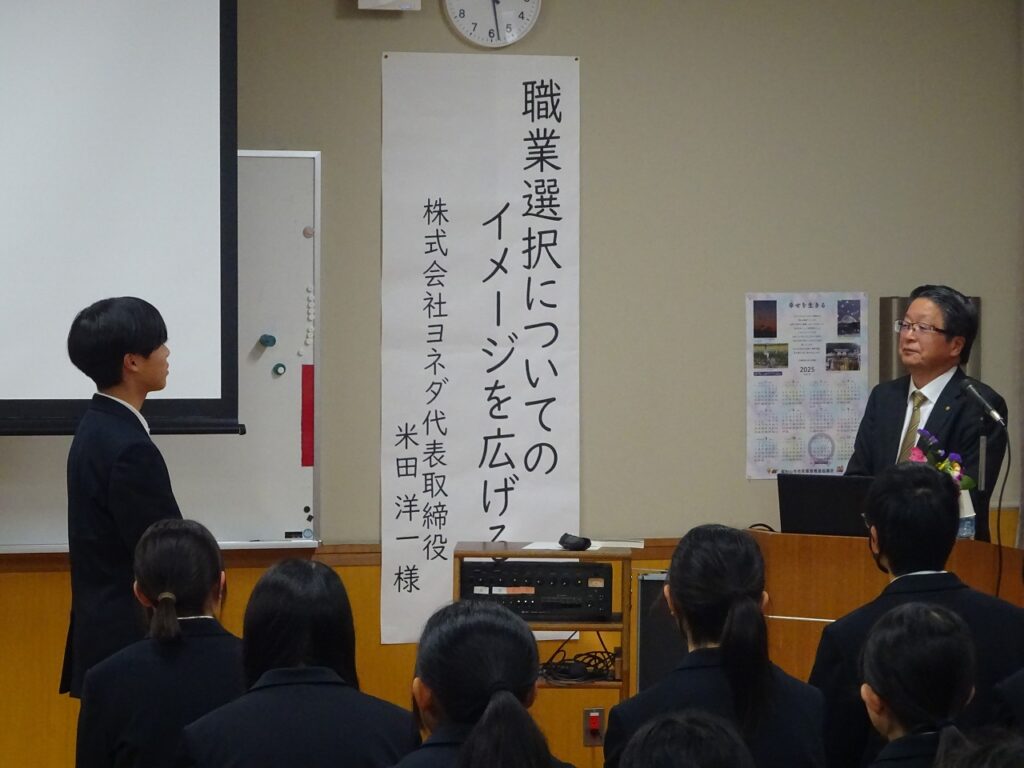 職業選択についての
イメージを広げる
株式会社ヨネダ代表取締役
米田洋一様
幸せを生きる
2025
4
5
6
7
8